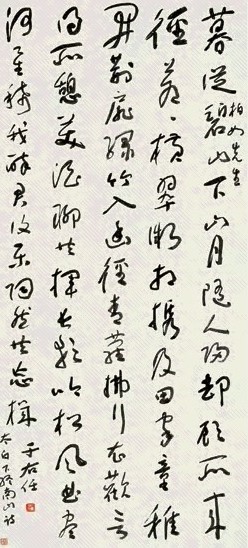 暮從碧山下山月隨人歸卻顧所來
先生
徑蒼蒼橫翠微相攜及田家童稚
開荊扉綠竹入幽徑青蘿拂行衣歡言
得所憩美酒聊共揮長歌吟松風曲盡
河星稀我醉君復樂陶然共忘機
于右任
太白下終南山詩